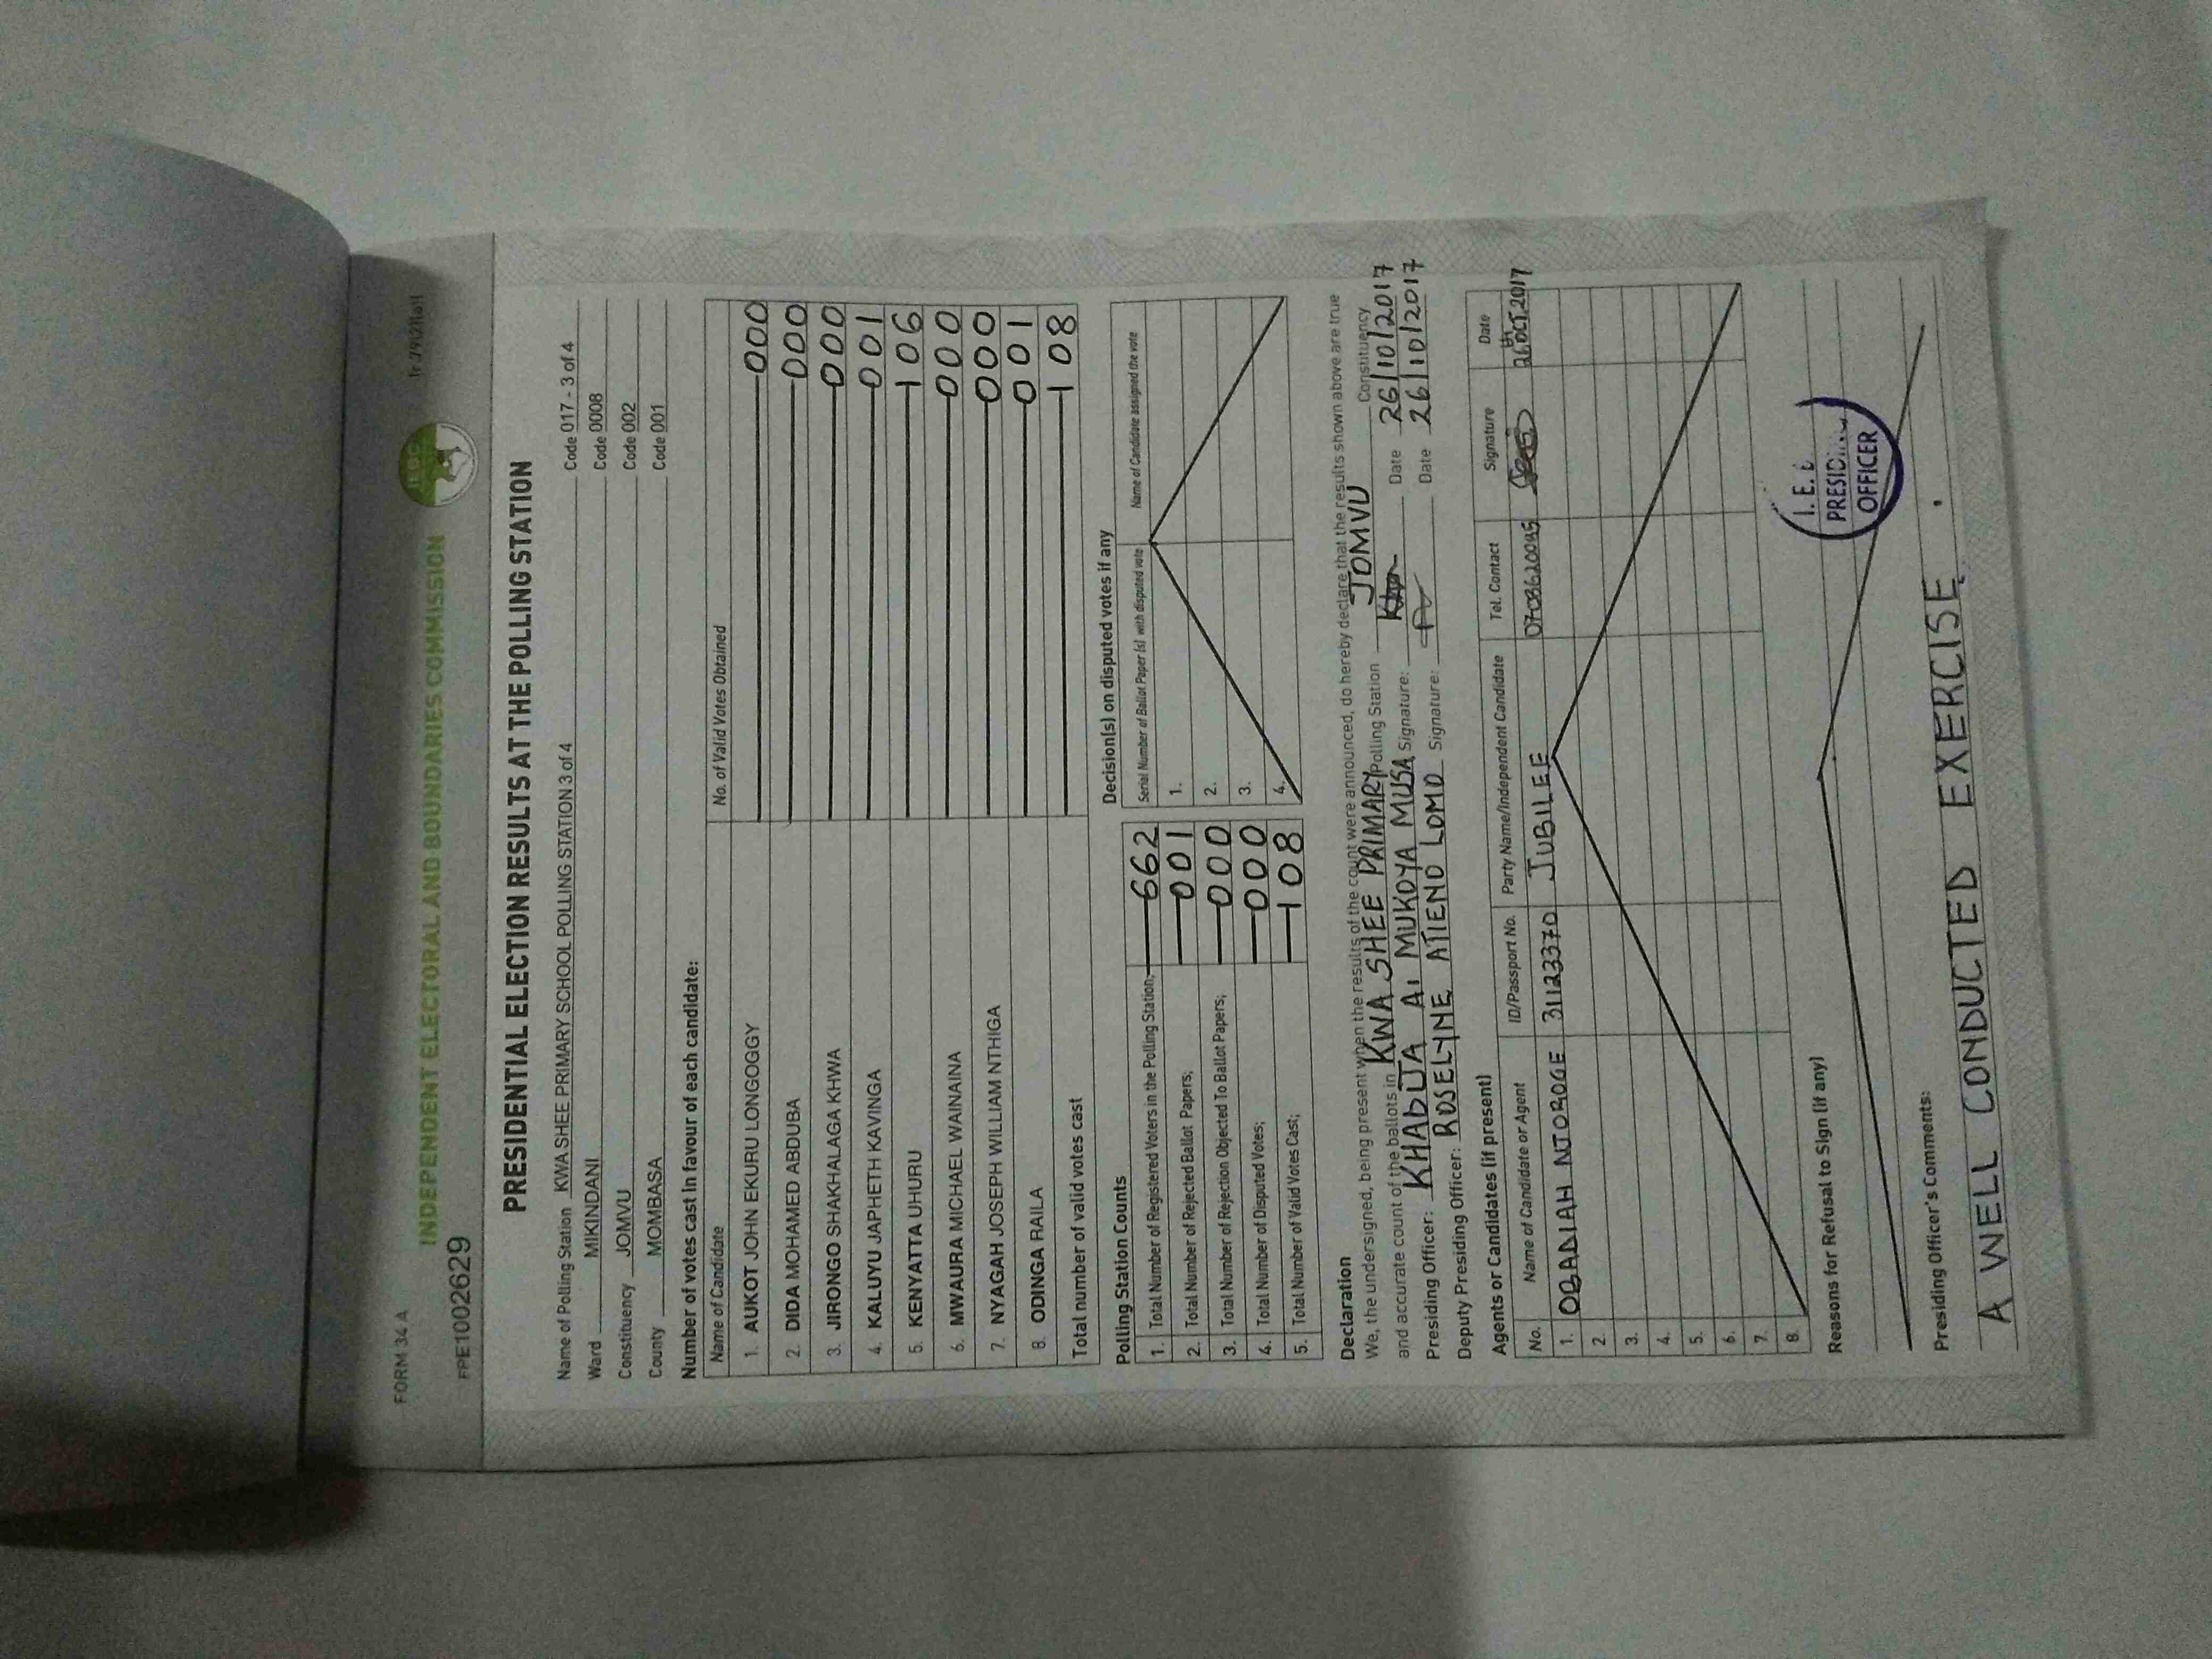 FORM 34 A
INDEPENDENT ELECTORAL AND BOUNDARIES COMMISSION
IEBC
FPE1002629
PRESIDENTIAL ELECTION RESULTS AT THE POLLING STATION
Name of Polling Station KWA SHEE PRIMARY SCHOOL POLLING STATION 3 of 4 Code 017 - 3 of 4
Ward MIKINDANI Code 0008
Constituency JOMVU Code 002
County MOMBASA Code 001
Number of votes cast in favour of each candidate:
Name of Candidate No. of Valid Votes Obtained
1. AUKOT JOHN EKURU LONGOGGY 000
2. DIDA MOHAMED ABDUBA 000
3. JIRONGO SHAKHALAGA KHWA 000
4. KALUYU JAPHETH KAVINGA 001
5. KENYATTA UHURU 106
6. MWAURA MICHAEL WAINAINA 000
7. NYAGAH JOSEPH WILLIAM NTHIGA 000
8. ODINGA RAILA 001
Total number of valid votes cast 108
Polling Station Counts
1. Total Number of Registered Voters in the Polling Station; 662
2. Total Number of Rejected Ballot Papers; 001
3. Total Number of Rejection Objected To Ballot Papers; 000
4. Total Number of Disputed Votes; 000
5. Total Number of Valid Votes Cast; 108
Decision(s) on disputed votes if any
Serial Number of Ballot Paper (s) with disputed vote Name of Candidate assigned the vote
1.
2.
3.
4.
Declaration
We, the undersigned, being present when the results of the count were announced, do hereby declare that the results shown above are true
and accurate count of the ballots in KWA SHEE PRIMARY Polling Station JOMVU Constituency
Presiding Officer: KHADIJA AI MUKOYA MUSA Signature: Date 26/10/2017
Deputy Presiding Officer: ROSELYNE ATIENO LOMO Signature: Date 26/10/2017
Agents or Candidates (if present)
No. Name of Candidate or Agent ID/Passport No. Party Name/Independent Candidate Tel. Contact Signature Date
1. OBADIAH NJOROGE 31123370 JUBILEE 0708620045 26th OCT. 2017
2.
3.
4.
5.
6.
7.
8.
Reasons for Refusal to Sign (if any)
PRESIDING
OFFICER
Presiding Officer's Comments:
A WELL CONDUCTED EXERCISE.